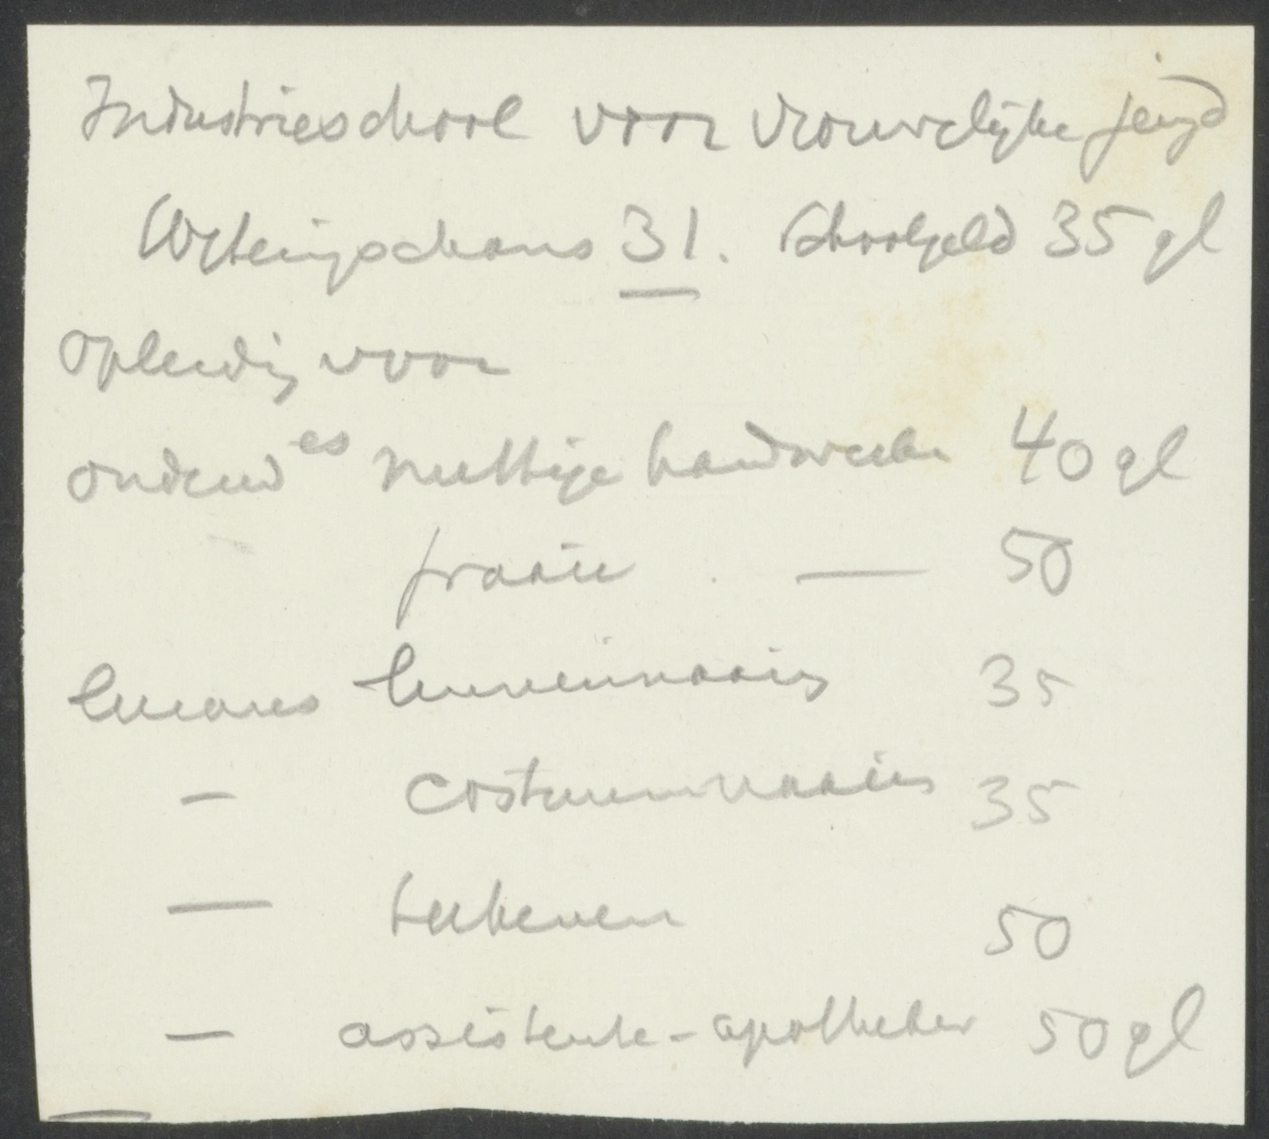 Industrieschool voor vrouwelijke jeugd
Weteringschans 31. Schoolgeld 35 gl
Opleiding voor
onderw es nuttige handwerken 40 gl
fraaie — 50
linnennaaien 35
— costuumnaaien 35
— teekenen 50
— assistente-apotheker 50 gl